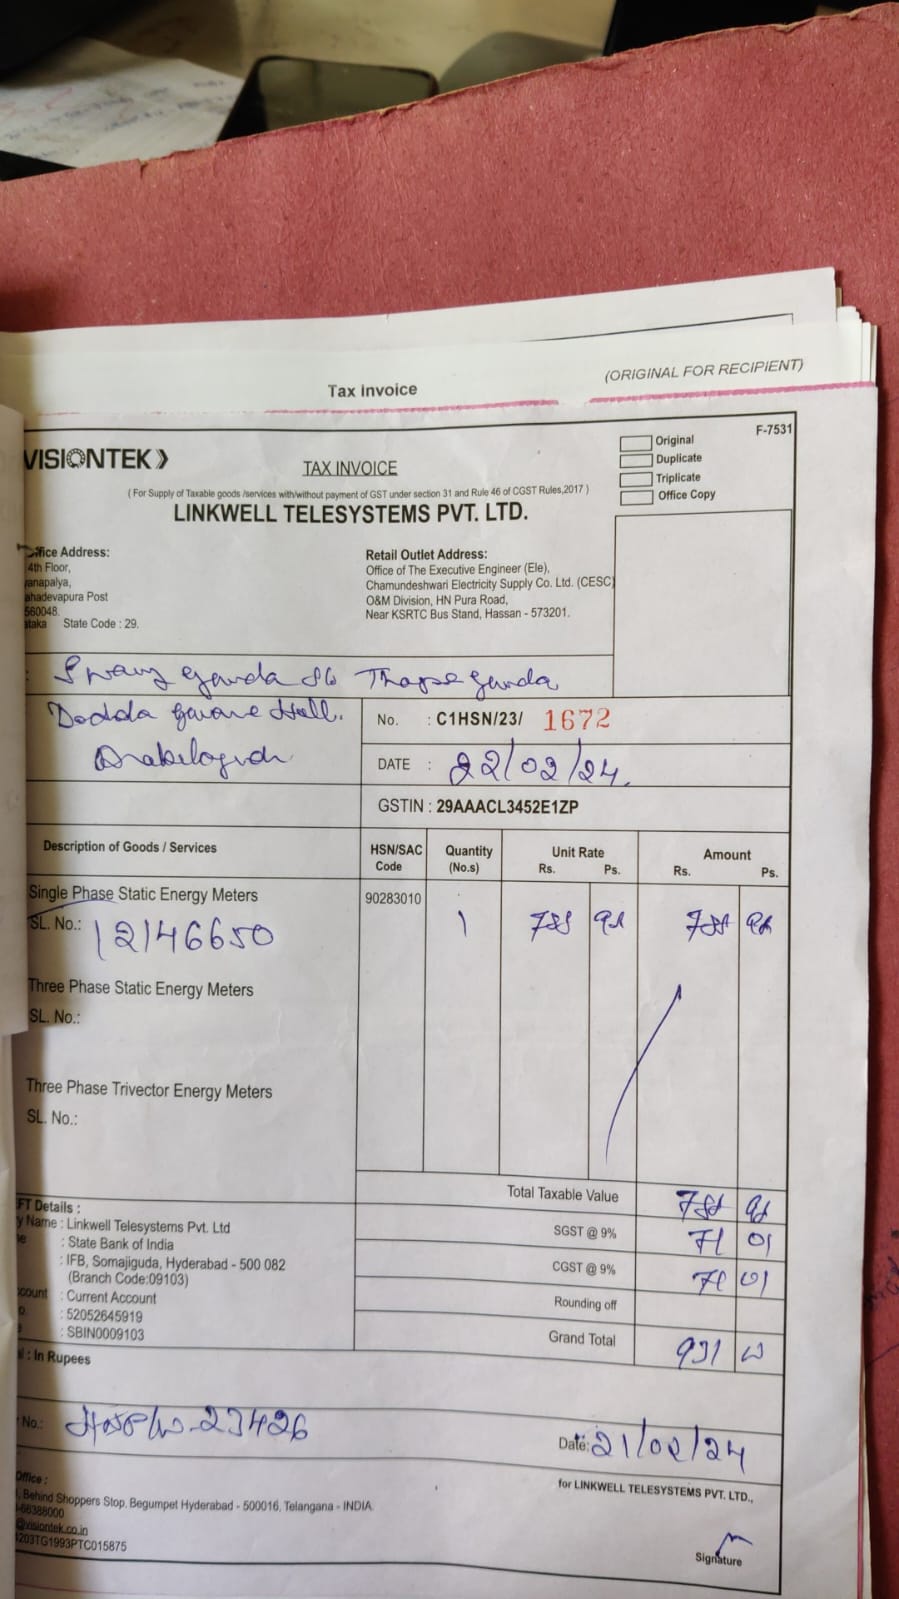 Tax Invoice
(ORIGINAL FOR RECIPIENT)
F-7531
VISIONTEK
TAX INVOICE
Original
Duplicate
Triplicate
Office Copy
( For Supply of Taxable goods /services with/without payment of GST under section 31 and Rule 46 of CGST Rules,2017 )
LINKWELL TELESYSTEMS PVT. LTD.
ffice Address:
4th Floor,
anapalya,
ahadevapura Post
560048.
ataka State Code : 29.
Retail Outlet Address:
Office of The Executive Engineer (Ele),
Chamundeshwari Electricity Supply Co. Ltd. (CESC)
O&M Division, HN Pura Road,
Near KSRTC Bus Stand, Hassan - 573201.
Gowda Gowda
Dodda
No. : C1HSN/23/ 1672
DATE : 22/02/24
GSTIN : 29AAACL3452E1ZP
Description of Goods / Services HSN/SAC Code Quantity (No.s) Unit Rate Rs. Ps. Amount Rs. Ps.
Single Phase Static Energy Meters 90283010
SL. No.: 12146650 1 788 98 788 98
Three Phase Static Energy Meters
SL. No.:
Three Phase Trivector Energy Meters
SL. No.:
Total Taxable Value 788 98
SGST @ 9% 71 01
CGST @ 9% 71 01
Rounding off
Grand Total 931 00
FT Details :
y Name : Linkwell Telesystems Pvt. Ltd
: State Bank of India
: IFB, Somajiguda, Hyderabad - 500 082
(Branch Code:09103)
count : Current Account
: 52052645919
: SBIN0009103
: In Rupees
No.: 23426
Date: 21/02/24
for LINKWELL TELESYSTEMS PVT. LTD.,
Office :
, Behind Shoppers Stop, Begumpet Hyderabad - 500016, Telangana - INDIA.
-66388000
@visiontek.co.in
203TG1993PTC015875
Signature